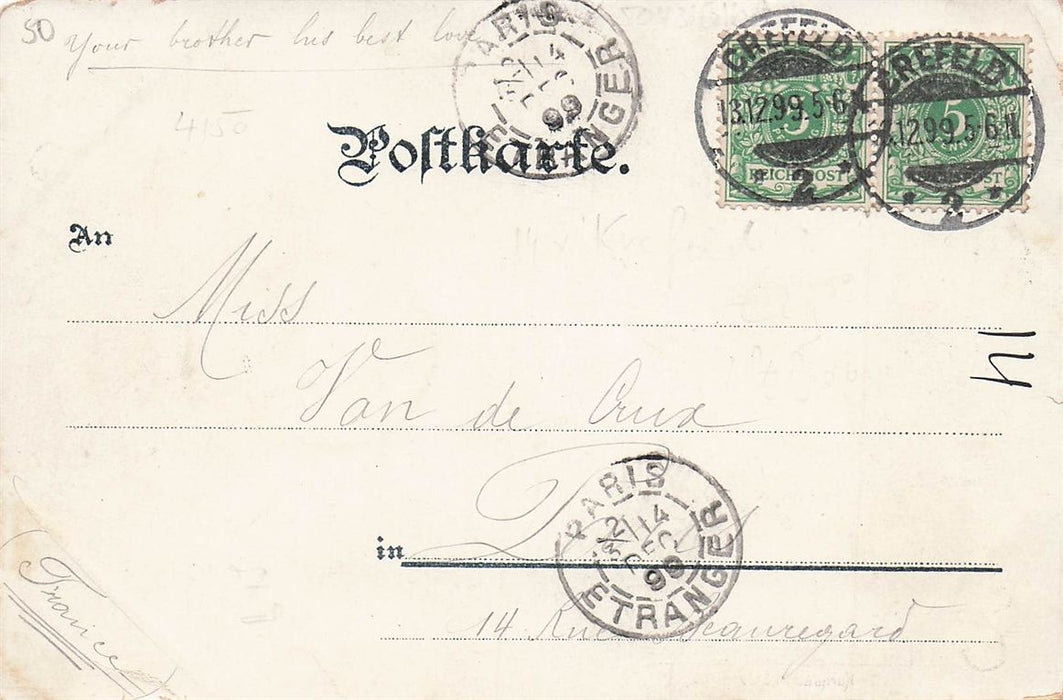 50
Your brother his best love
PARIS ETRANGER
14 DEC 99
CREFELD
13.12.99.5-6N.
* 2 *
5
REICHSPOST
CREFELD
12.99.5-6N.
* 2 *
5
4150
Postkarte.
An
Miss
Van de Crux
14
PARIS ETRANGER
14 DEC 99
in
14 Rue Beauregard
France